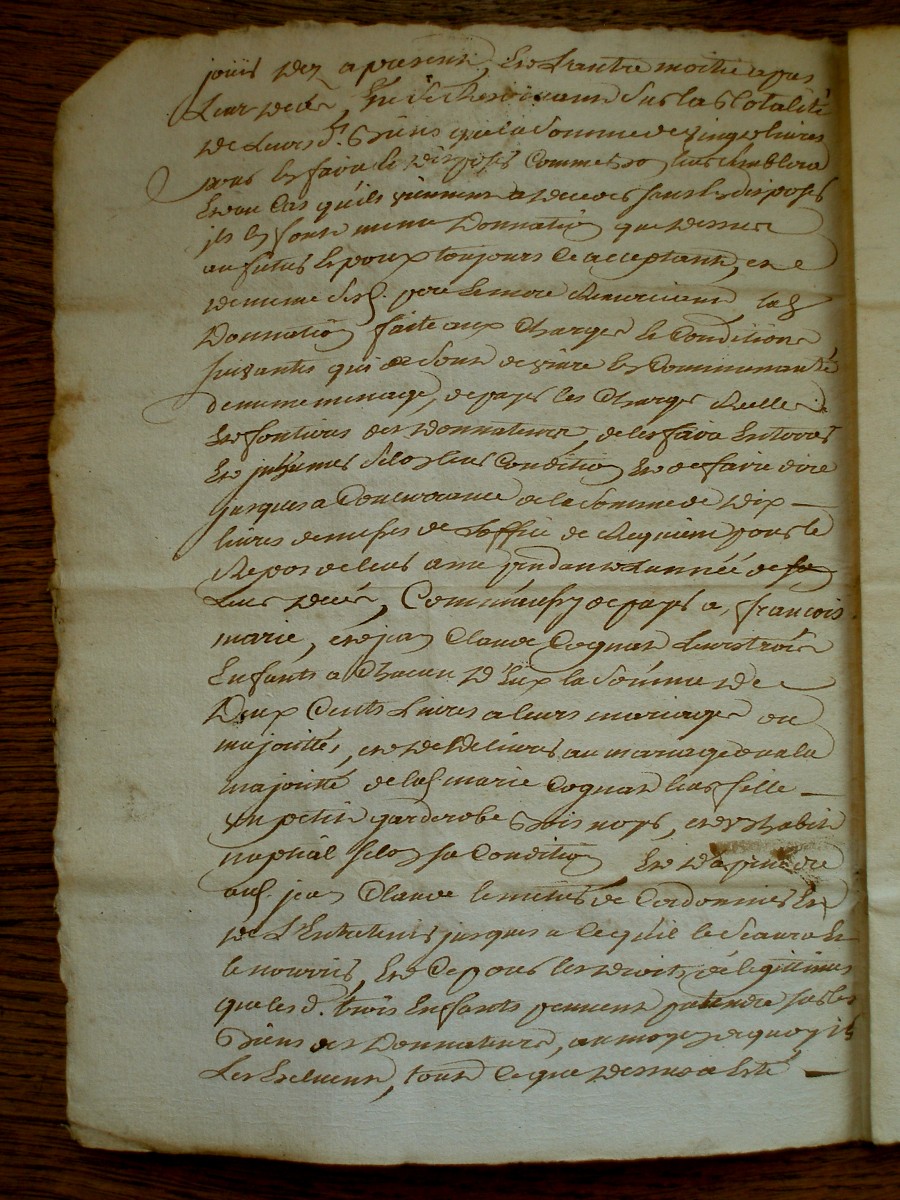 jouir dez a present, Et Lautre moitié apres
Leur decés, En se Reservant sur la totalité
de Leurs d. Biens qu'ela somme de vingt livres
pour en faire et disposés comme bon leur semblera
Et au Cas qu'ils viennent a deceder sans en disposés
ils en font meme Donnation que dessus
au futur Epoux toujours Ce acceptant, et
de meme sesd. pere Et mere Remerciant lad.
Donnation faite aux Charges Et Conditions
suivantes qui Sont de vivre En Communauté
de meme menage, de payer les Charges Reelles
Et fontieres des donnateurs, de les faire Enterrer
Et inhumer selon leur Condition Et de faire dire
jusques a Concurrance de la Somme de dix
livres de messes de Loffice de Requiem pour le
Repos de leur ame pendant L'année de
Leur decés, Comm'aussy de payer a francois
marie, et jean Claude Cognat Leurs trois
Enfants a Chacun D'Eux la Somme de
Deux Cents Livres a leurs mariages ou
majorité, et de delivrer au mariage ou a la
majorité de lad. marie Cognat leur fille
un petit garderobe Bois noyé, et un habit
nuptial selon sa Condition Et d'aprendre
aud. jean Claude le metier de Cordonnier Et
de L'Entretenir jusques a Ce qu'il le Scaura Et
le nourrir, Et Ce pour les droits de legitimes
que les d. trois Enfants peuvent pretendre sur les
Biens des Donnateurs, au moyen de quoy ils
Les Excluent, tout Ce que dessus a Eté